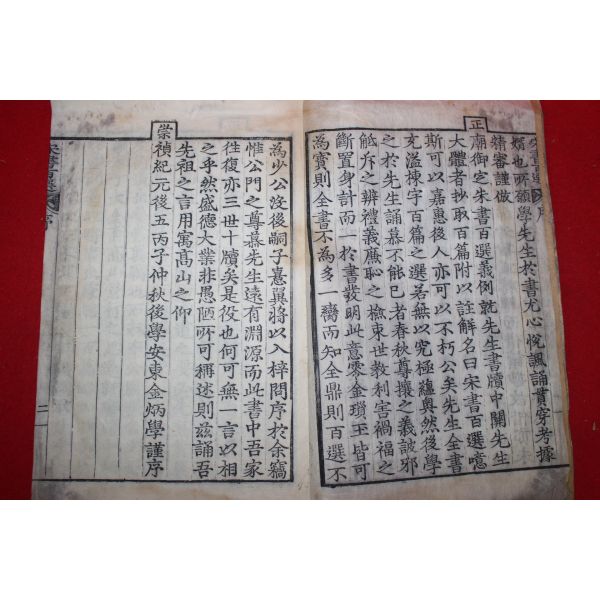 婿也所願學先生於書尤心悅諷誦貫穿考據
精審謹倣
正廟御定朱書百選義例就先生書牘中關先生
大體者抄取百篇附以註解名曰宋書百選噫
斯可以嘉惠後人亦可以不朽公矣先生全書
充溢棟宇百篇之選若無以究極蘊奧然後學
之於先生誦慕不能已者春秋尊攘之義詖邪
觝斥之辨禮義廉恥之撿束世敎利害禍福之
斷置身計而一於書發明此意零金瑣玉皆可
為寶則全書不為多一臠而知全鼎則百選不
為少公沒後嗣子憙翼將以入梓問序於余竊
惟公門之尊慕先生遠有淵源而此書中吾家
往復亦三世十牘矣是役也何可無一言以相
之乎然盛德大業非愚陋所可稱述則玆誦吾
先祖之言用寓高山之仰
崇禎紀元後五丙子仲秋後學安東金炳學謹序
宋書百選 序
二